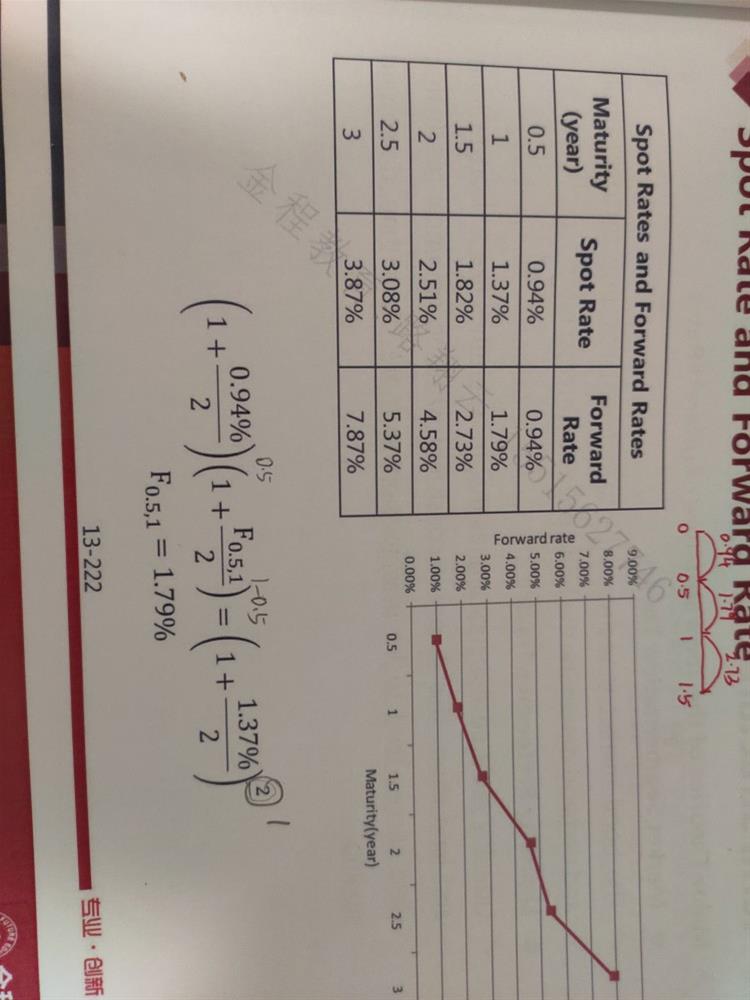 Spot Rate and Forward Rate
0.94 1.79 2.73
0 0.5 1 1.5
Spot Rates and Forward Rates
Maturity (year) Spot Rate Forward Rate
0.5 0.94% 0.94%
1 1.37% 1.79%
1.5 1.82% 2.73%
2 2.51% 4.58%
2.5 3.08% 5.37%
3 3.87% 7.87%
Forward rate
9.00%
8.00%
7.00%
6.00%
5.00%
4.00%
3.00%
2.00%
1.00%
0.00%
0.5 1 1.5 2 2.5 3
Maturity(year)
(1 + 0.94%/2)^0.5 (1 + F0.5,1/2)^1-0.5 = (1 + 1.37%/2)^2 1
F0.5,1 = 1.79%
13-222
专业·创新